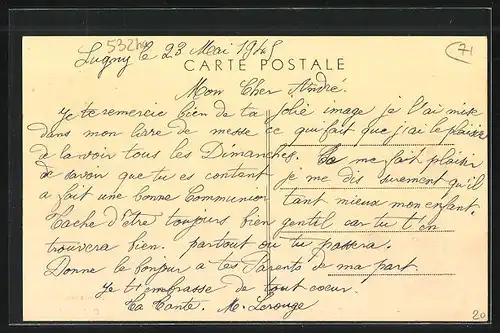 5324a
71
Lugny le 23 Mai 1945
CARTE POSTALE
Mon Cher André.
Je te remercie bien de ta jolie image je l'ai mise
dans mon livre de messe ce qui fait que j'ai le plaisir
de la voir tous les Dimanches. Ca me fait plaisir
de savoir que tu es contant je me dis surement qu'il
a fait une bonne Communion tant mieux mon enfant.
Tache d'être toujours bien gentil car tu t'en
trouvera bien. partout ou tu passera.
Donne le bonjour a tes Parents de ma part.
Je t'embrasse de tout coeur.
Ta Tante. M. Lerouge
20